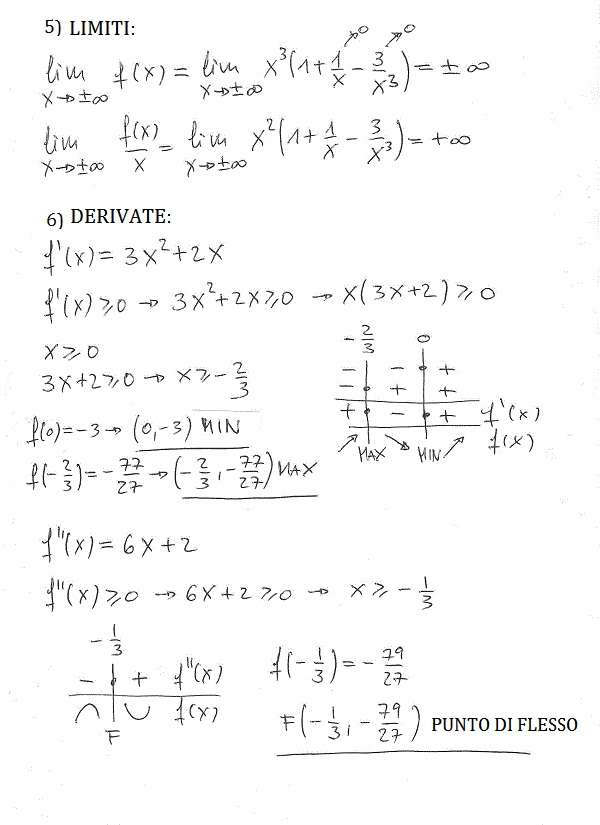 5) LIMITI:
→0 →0
lim x→±∞ f(x) = lim x→±∞ x³(1+1/x − 3/x³) = ±∞
lim x→±∞ f(x)/x = lim x→±∞ x²(1+1/x − 3/x³) = +∞
6) DERIVATE:
f'(x) = 3x²+2x
f'(x) ⩾ 0 → 3x²+2x ⩾ 0 → x(3x+2) ⩾ 0
x ⩾ 0
3x+2 ⩾ 0 → x ⩾ −2/3
−2/3 0
− − +
− + +
+ − + f'(x)
↗ ↘ ↗ f(x)
MAX MIN
f(0) = −3 → (0,−3) MIN
f(−2/3) = −77/27 → (−2/3, −77/27) MAX
f''(x) = 6x+2
f''(x) ⩾ 0 → 6x+2 ⩾ 0 → x ⩾ −1/3
−1/3
− + f''(x)
∩ ∪ f(x)
F
f(−1/3) = −79/27
F(−1/3, −79/27) PUNTO DI FLESSO